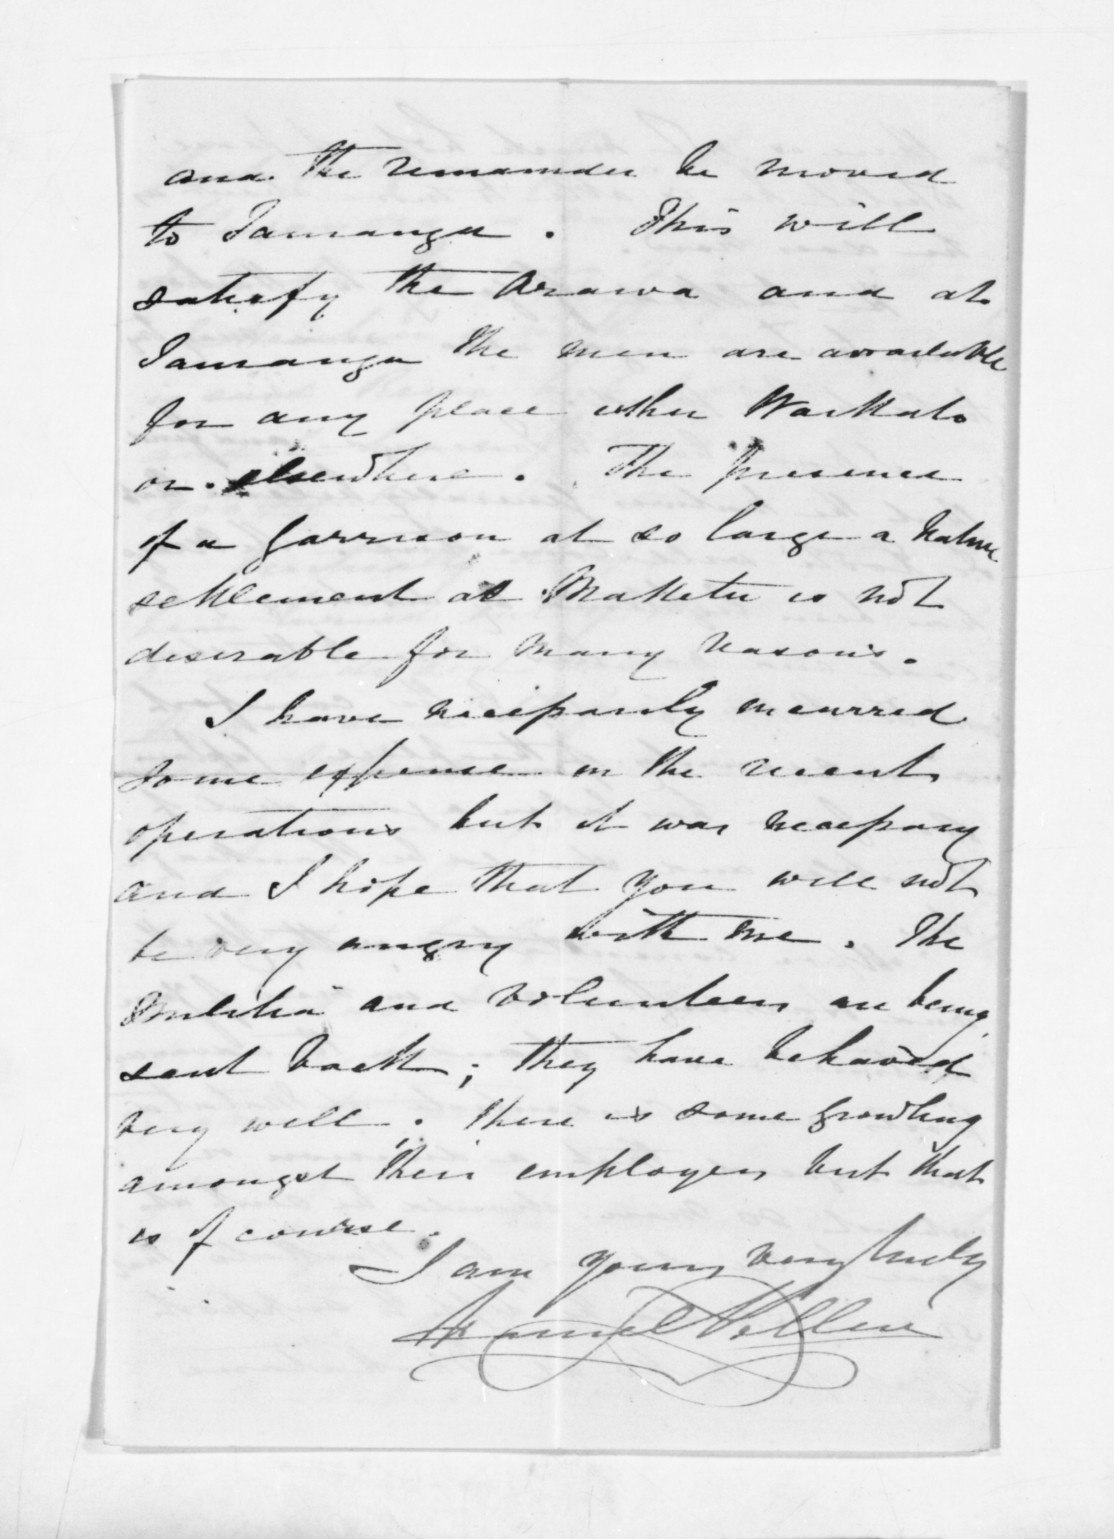 and the remainder be moved
to Tauranga. This will
satisfy the Arawa and at
Tauranga the men are available
for any place either Waikato
or elsewhere. The presence
of a garrison at so large a Native
settlement as Maketu is not
desirable for many reasons.
I have necessarily incurred
some expense in the recent
operations but it was necessary
and I hope that you will not
be very angry with me. The
Militia and Volunteers are being
sent back; they have behaved
very well. There is some growling
amongst their employers but that
is of course.
I am yours very truly
Daniel Pollen